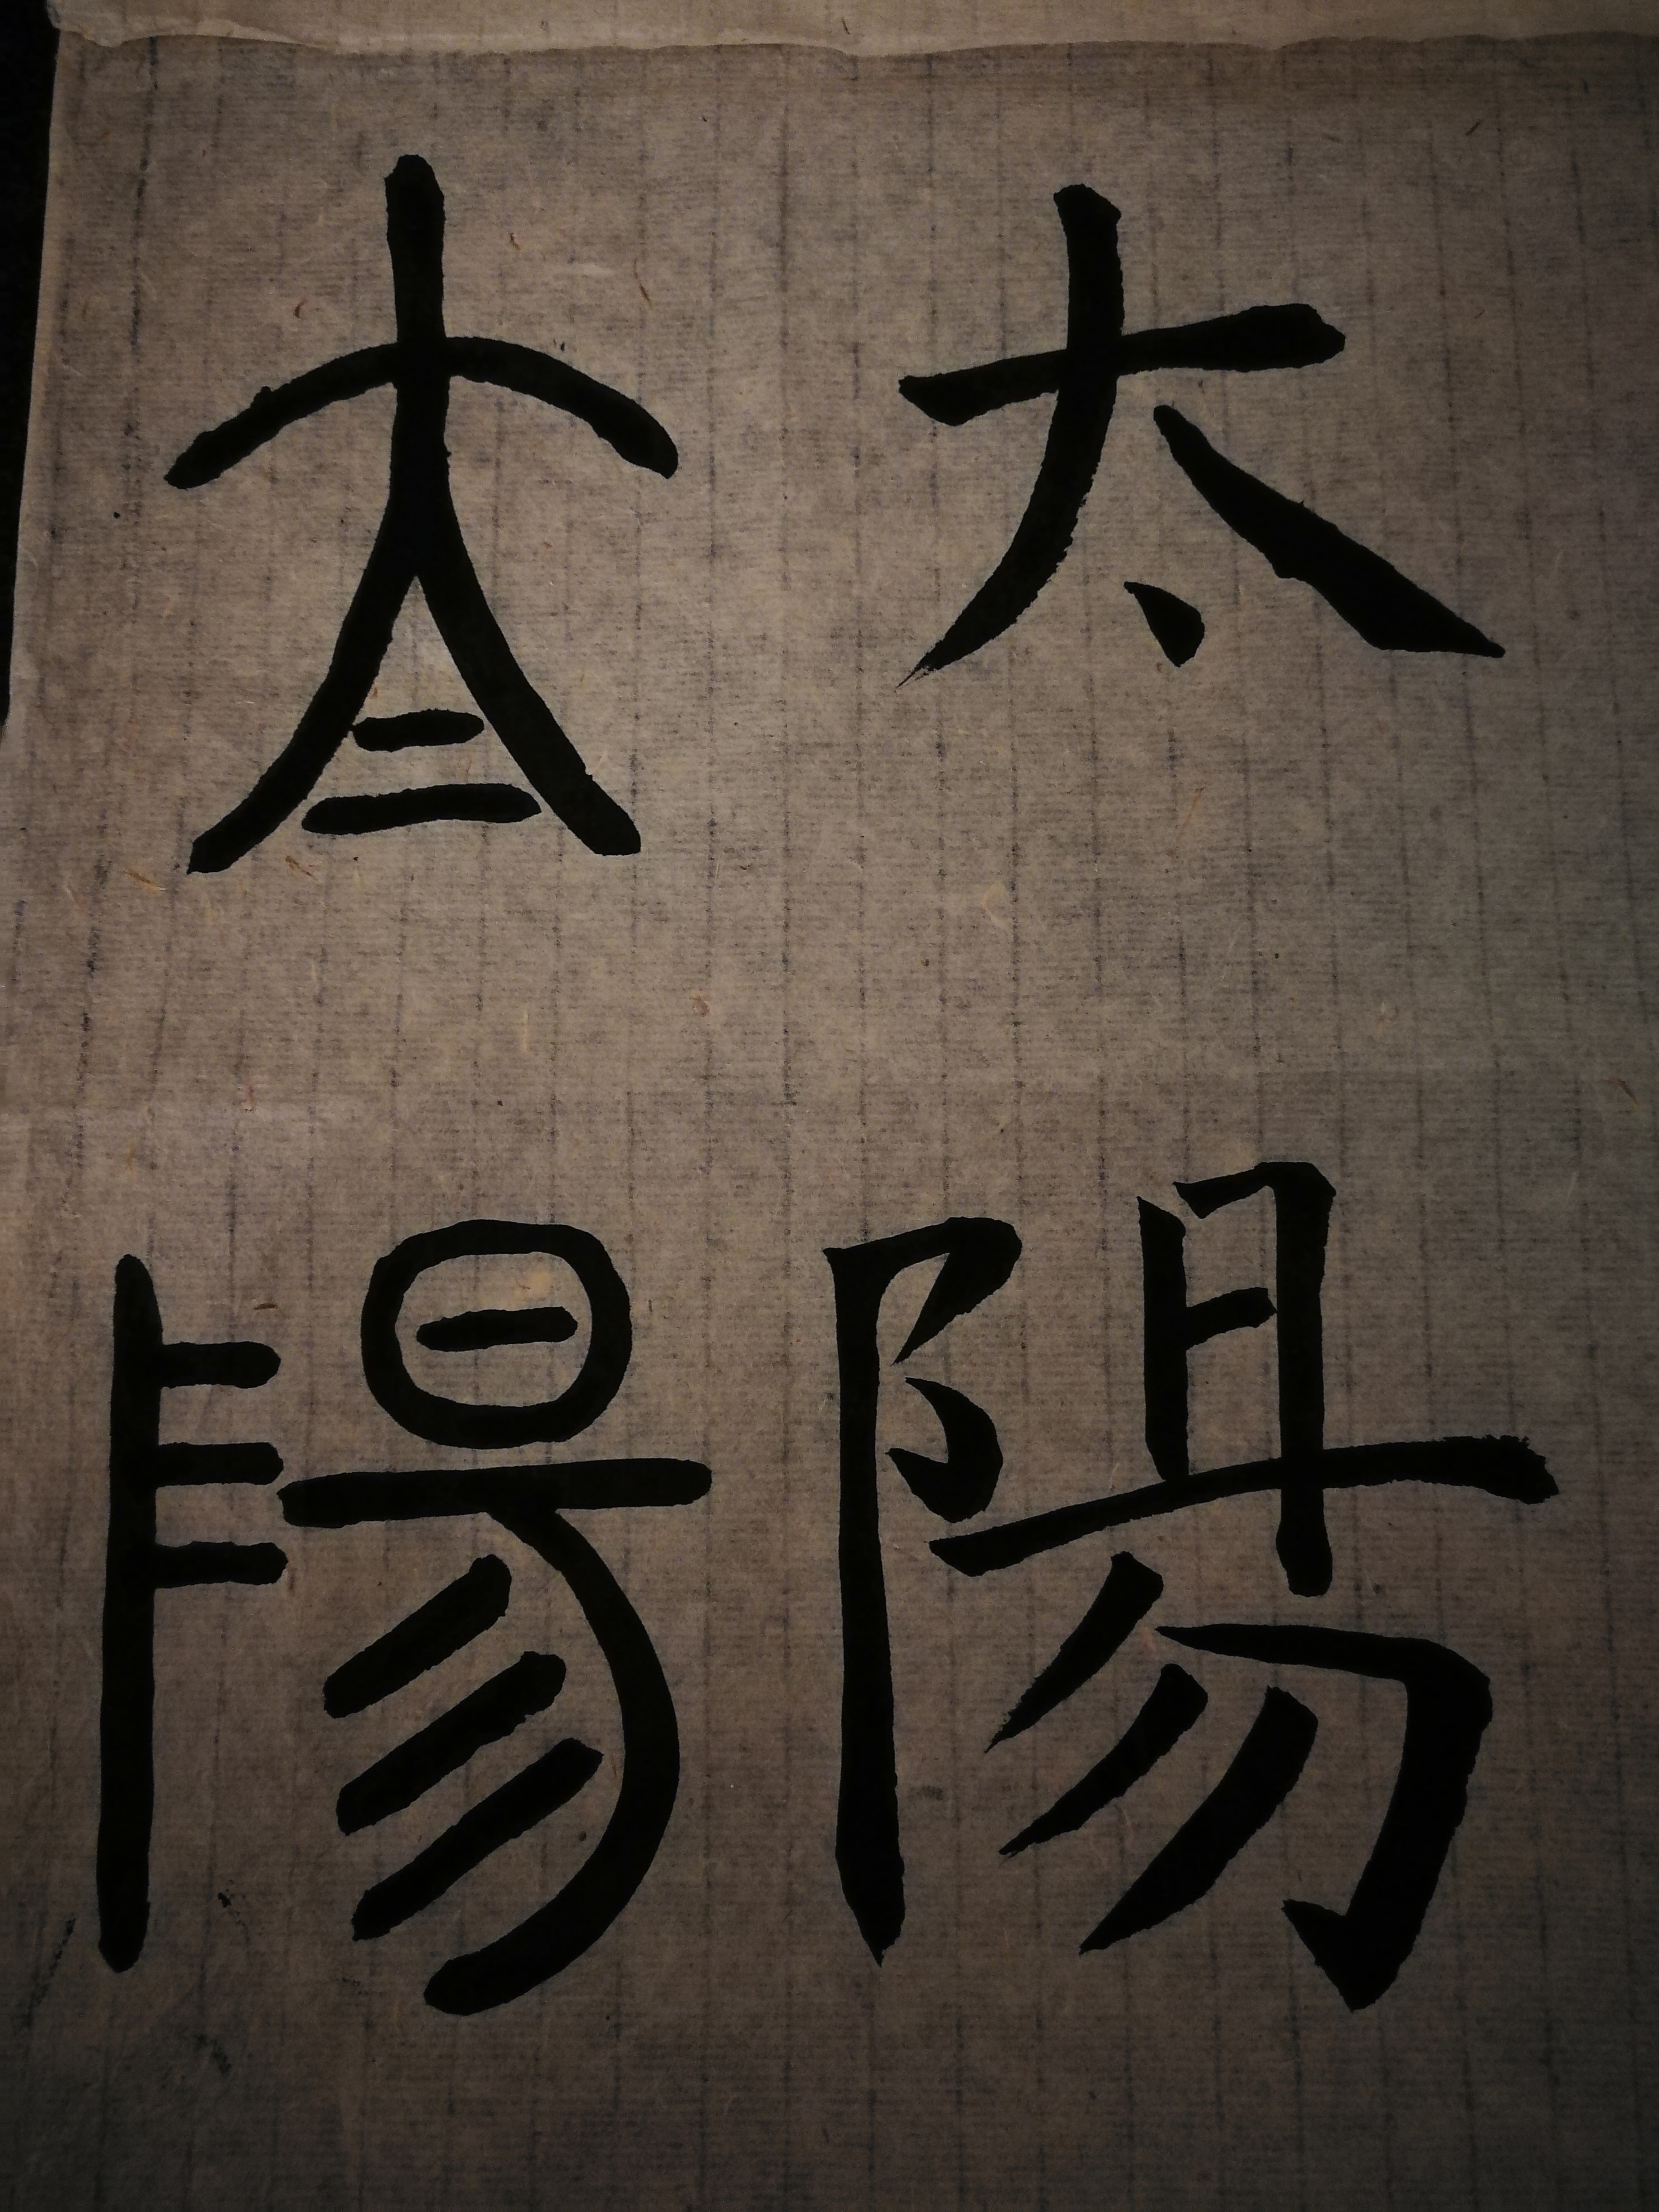 太陽
太陽